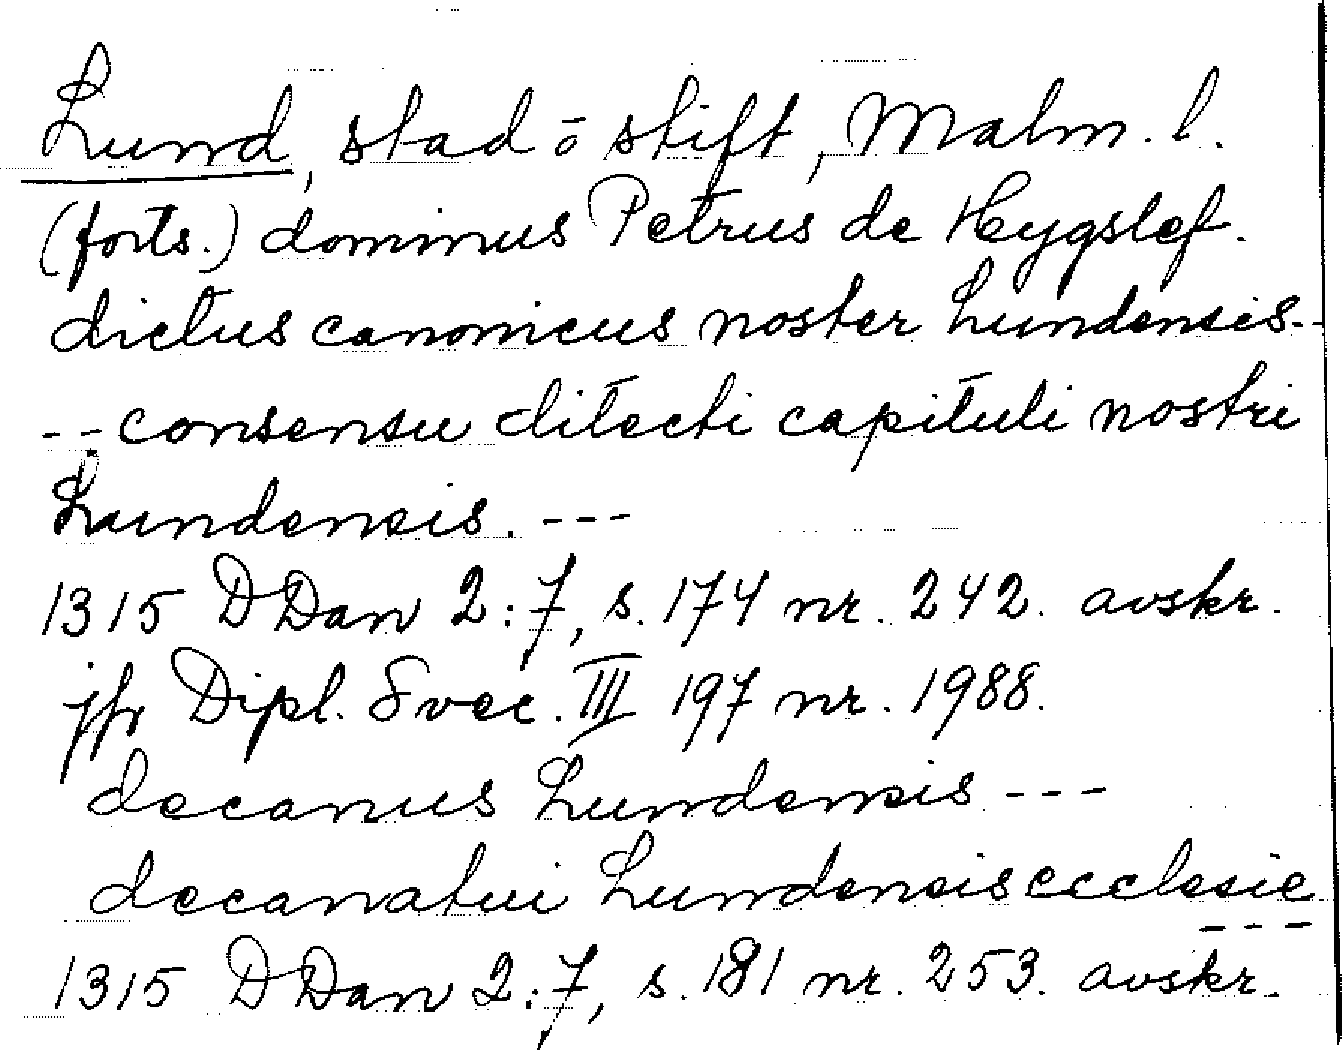 Lund, stad o stift, Malm. l.
(forts.) dominus Petrus de Hygslef.
dictus canonicus noster Lundensis.--
-- consensu dilecti capituli nostri
Lundensis. ---
1315 DDan 2:7, s. 174 nr. 242. avskr.
jfr Dipl. Svec. III 197 nr. 1988.
decanus Lundensis ---
decanatui Lundensis ecclesie
---
1315 DDan 2:7, s. 181 nr. 253. avskr.